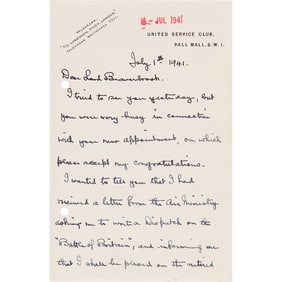 2 - JUL 1941
UNITED SERVICE CLUB,
PALL MALL, S.W.1.
TELEGRAMS,
July 1st 1941.
Dear Lord Beaverbrook.
I tried to see you yesterday, but
you were very busy in connection
with your new appointment, on which
please accept my congratulations.
I wanted to tell you that I had
received a letter from the Air Ministry
asking me to write a Dispatch on the
"Battle of Britain", and informing me
that I shall be placed on the retired